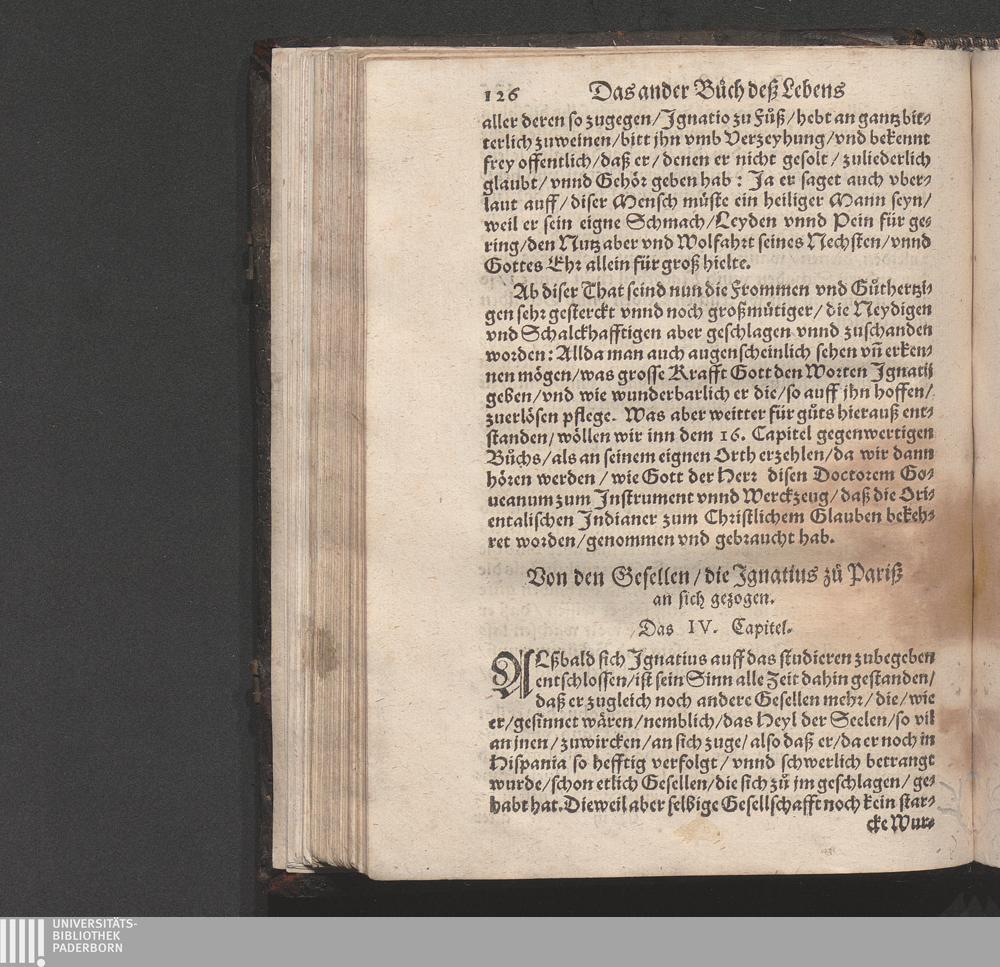 126 Das ander Bůch deß Lebens
aller deren so zugegen/ Ignatio zu Fůß/ hebt an gantz bit-
terlich zuweinen/ bitt jhn vmb Verzeyhung/ vnd bekennt
frey offentlich/ daß er/ denen er nicht gesolt/ zuliederlich
glaubt/ vnnd Gehör geben hab: Ja er saget auch vber-
laut auff/ diser Mensch müste ein heiliger Mann seyn/
weil er sein eigne Schmach/ Leyden vnnd Pein für ge-
ring/ den Nutz aber vnd Wolfahrt seines Nechsten/ vnnd
Gottes Ehr allein für groß hielte.
Ab diser That seind nun die Frommen vnd Gůthertzi-
gen sehr gesterckt vnnd noch großmütiger/ die Neydigen
vnd Schalckhafftigen aber geschlagen vnnd zuschanden
worden: Allda man auch augenscheinlich sehen vñ erken-
nen mögen/ was grosse Krafft Gott den Worten Ignatij
geben/ vnd wie wunderbarlich er die/ so auff jhn hoffen/
zuerlösen pflege. Was aber weitter für gůts hierauß ent-
standen/ wöllen wir inn dem 16. Capitel gegenwertigen
Bůchs/ als an seinem eignen Orth erzehlen/ da wir dann
hören werden/ wie Gott der Herr disen Doctorem Go-
ueanum zum Instrument vnnd Werckzeug/ daß die Ori-
entalischen Indianer zum Christlichem Glauben bekeh-
ret worden/ genommen vnd gebraucht hab.
Von den Gesellen/ die Ignatius zů Pariß
an sich gezogen.
Das IV. Capitel.
ALßbald sich Ignatius auff das studieren zubegeben
entschlossen/ ist sein Sinn alle Zeit dahin gestanden/
daß er zugleich noch andere Gesellen mehr/ die/ wie
er/ gesinnet wären/ nemblich/ das Heyl der Seelen/ so vil
an jnen/ zuwircken/ an sich zuge/ also daß er/ da er noch in
Hispania so hefftig verfolgt/ vnnd schwerlich betrangt
wurde/ schon etlich Gesellen/ die sich zů jm geschlagen/ ge-
habt hat. Dieweil aber selbige Gesellschafft noch kein star-
cke Wur-
UNIVERSITÄTS-
BIBLIOTHEK
PADERBORN